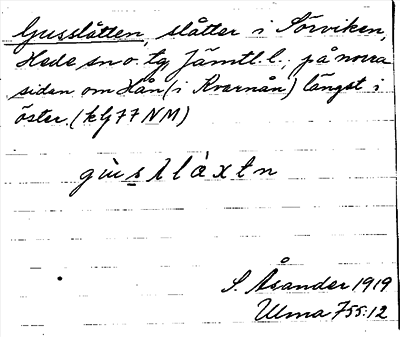 Gusslåtten, slåtter i Sörviken,
Hede sn o. tg Jämtl. l.; på norra
sidan om Hån (i Kvarnån) längst i
öster. (kbj 77 NM)
S. Åsander 1919
Ulma 755:12